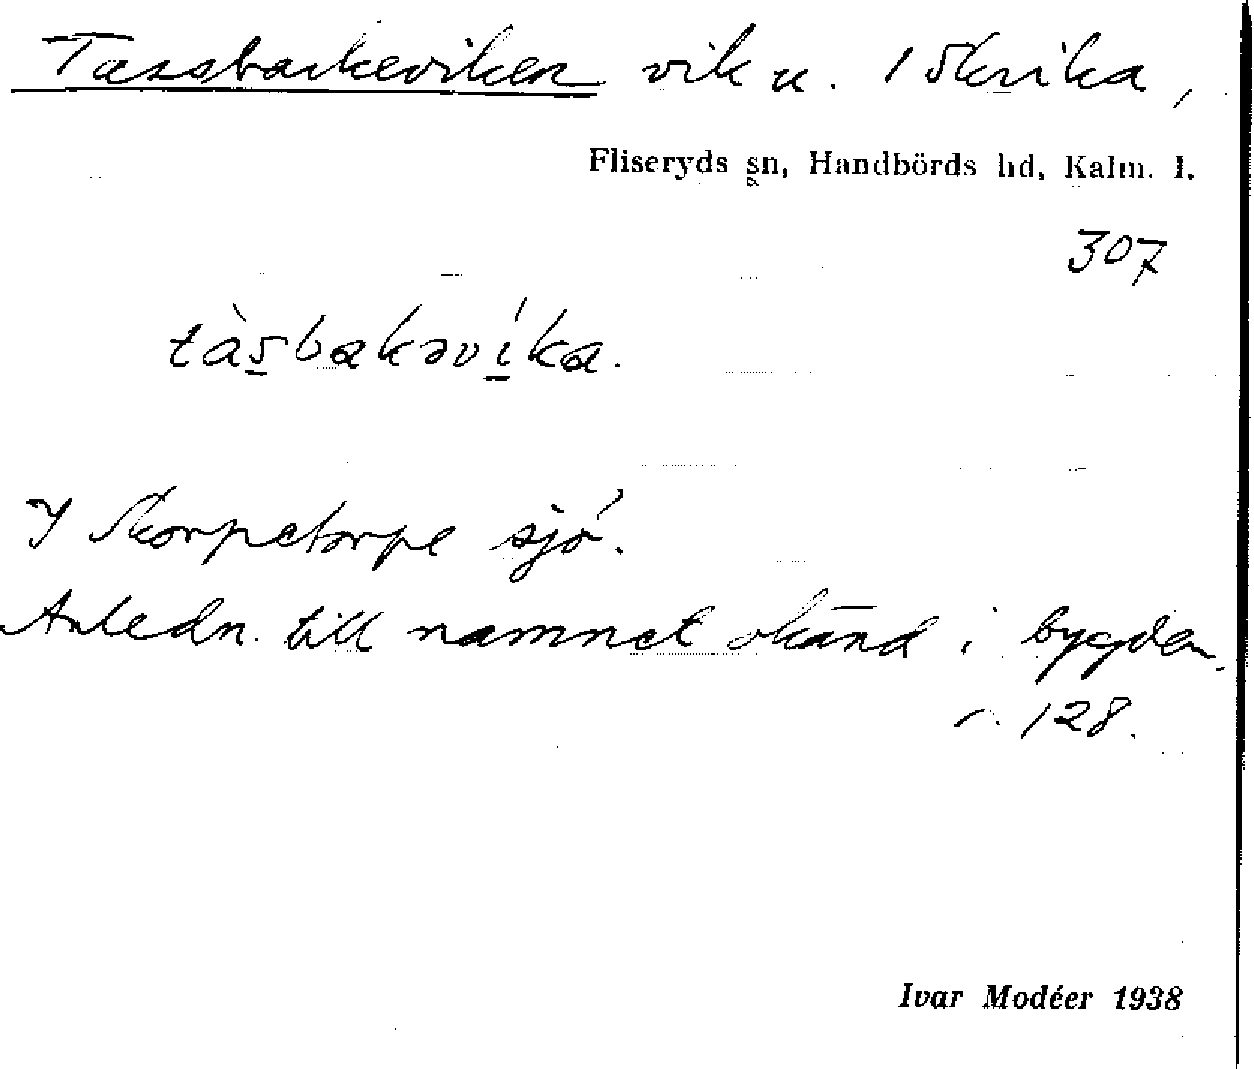 Tassbackeviken vik u. 1 Skrika,
Fliseryds sn, Handbörds hd, Kalm. l.
307
tàsbakəvíka.
I Skorpetorpe sjö.
Anledn. till namnet okänd i bygden.
128.
Ivar Modéer 1938